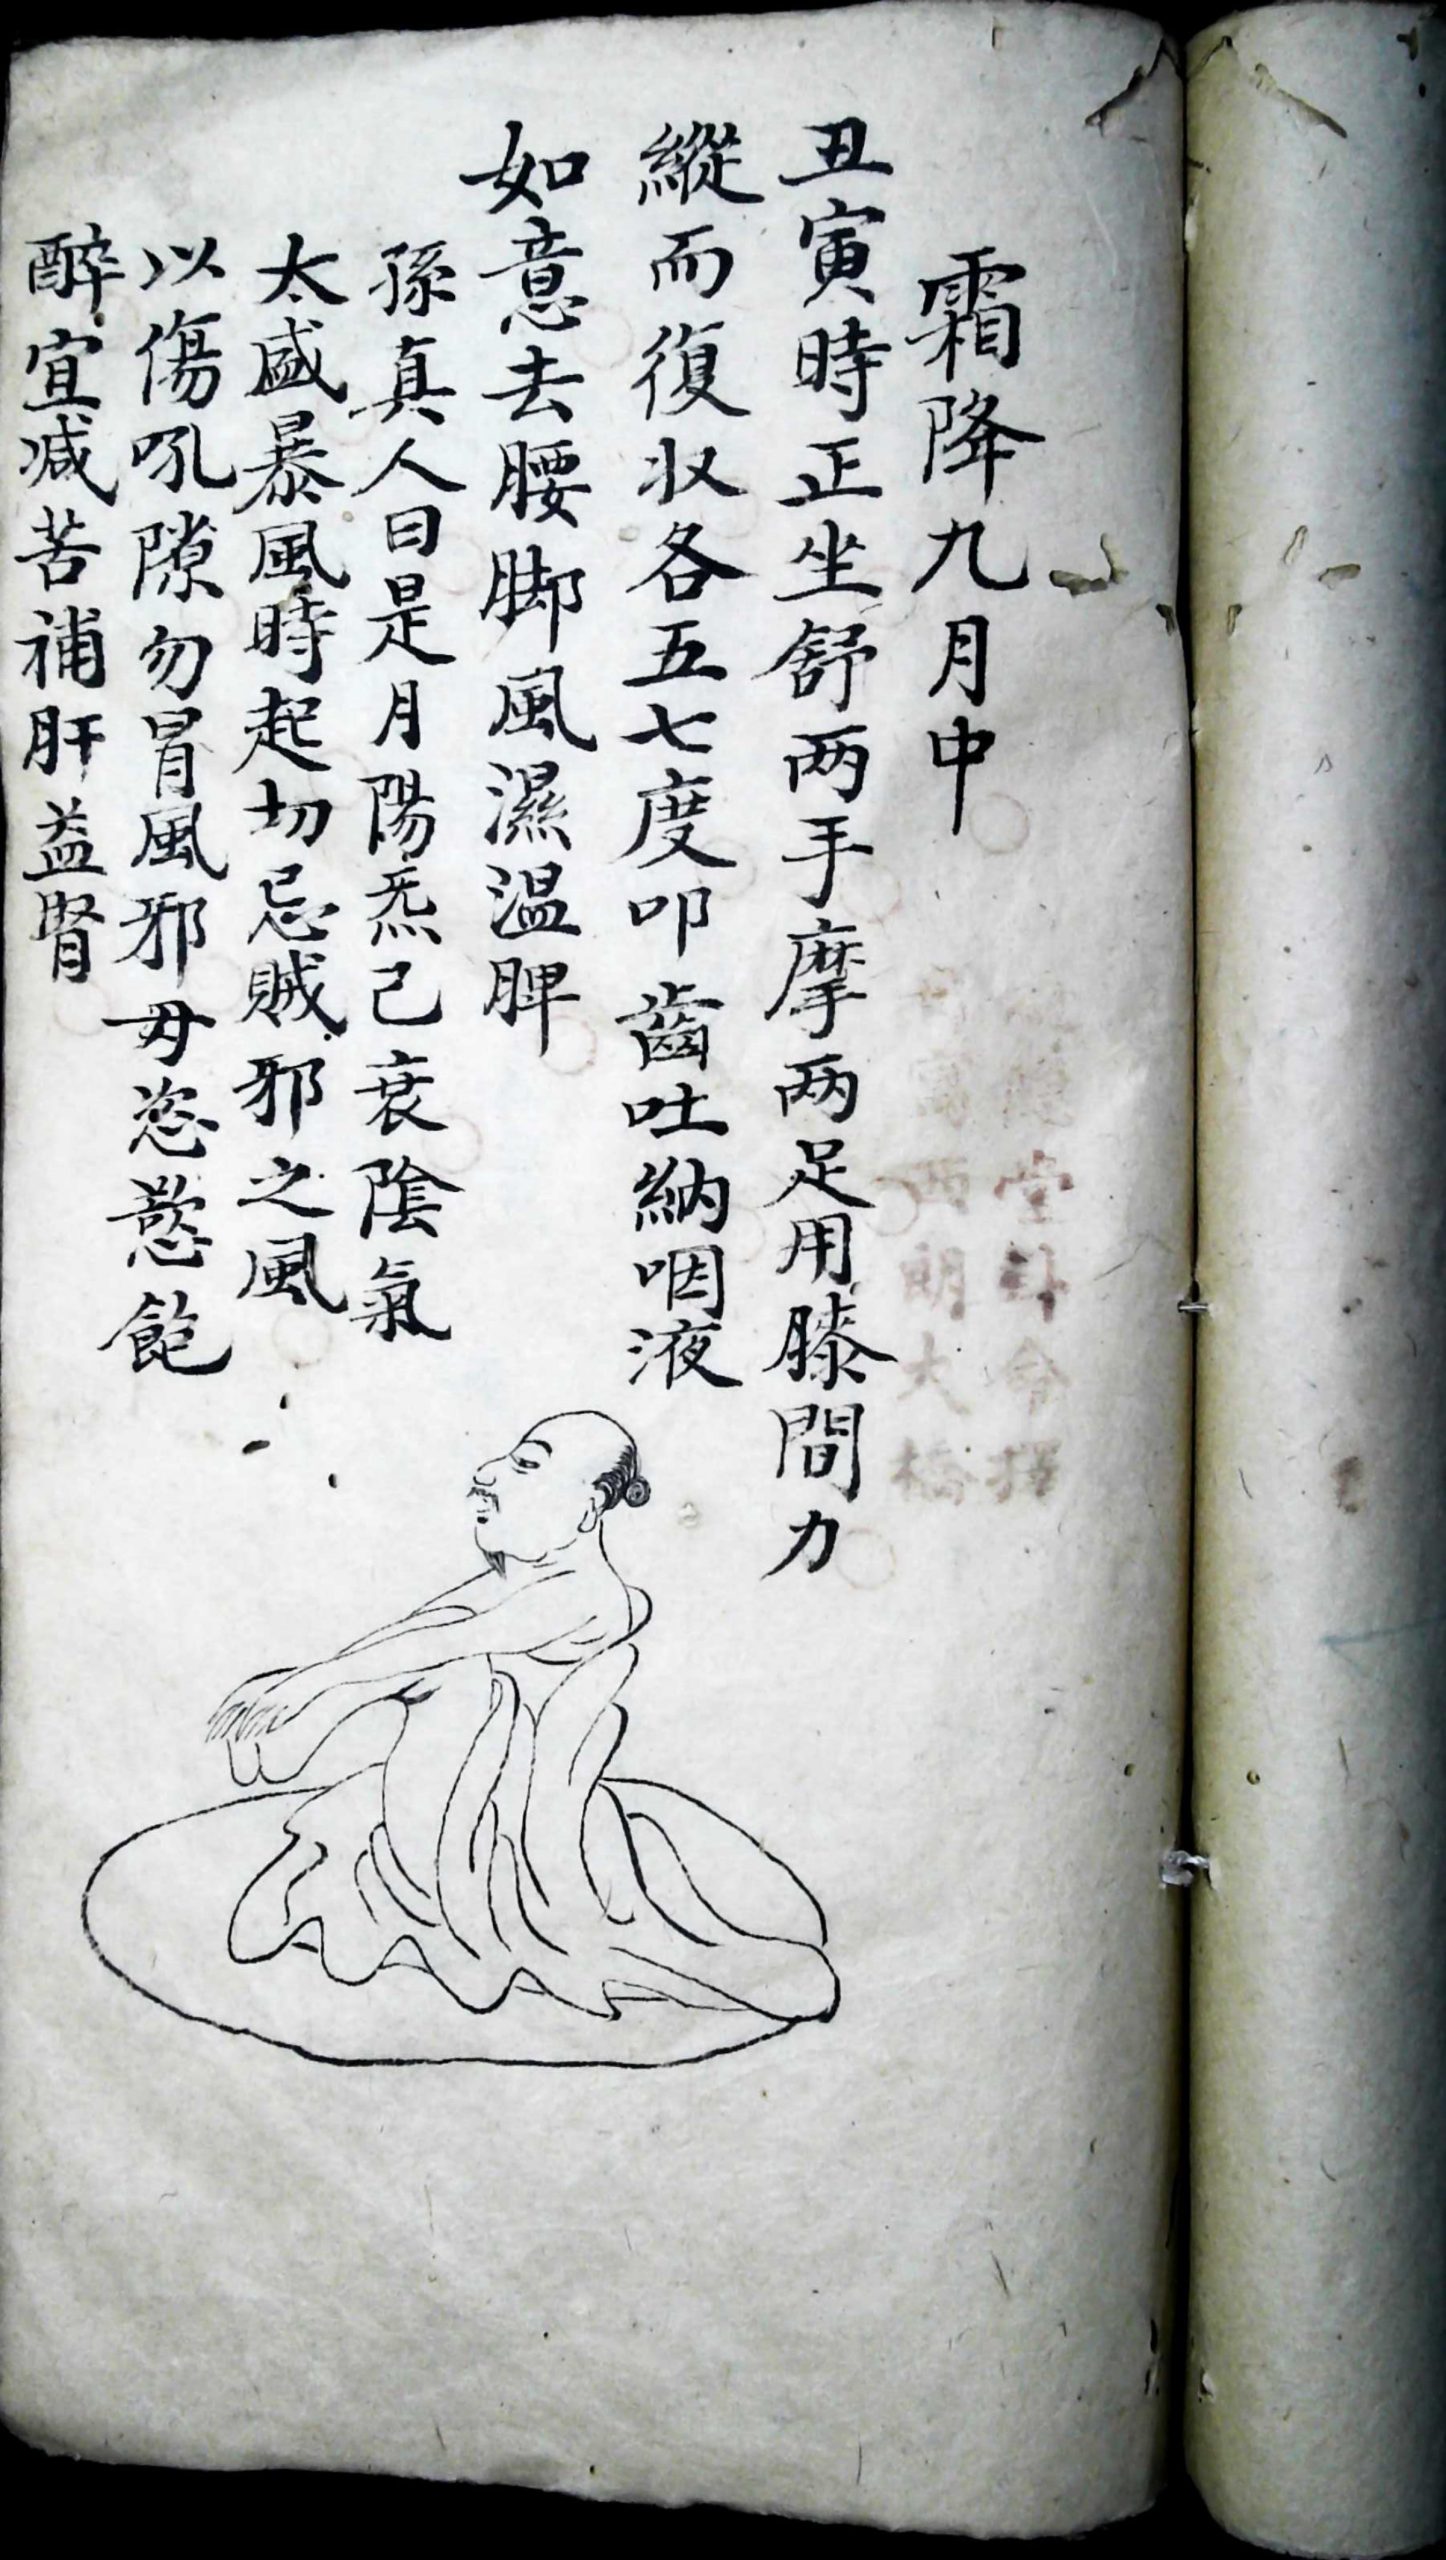 霜降九月中
丑寅時正坐舒两手摩两足用膝間力
縱而復収各五七度叩齒吐納咽液
如意去腰脚風濕温脾
孫真人曰是月陽炁已衰陰氣
太盛暴風時起切忌賊邪之風
以傷吼隙勿冒風邪毋恣慾飽
醉宜減苦補肝益腎